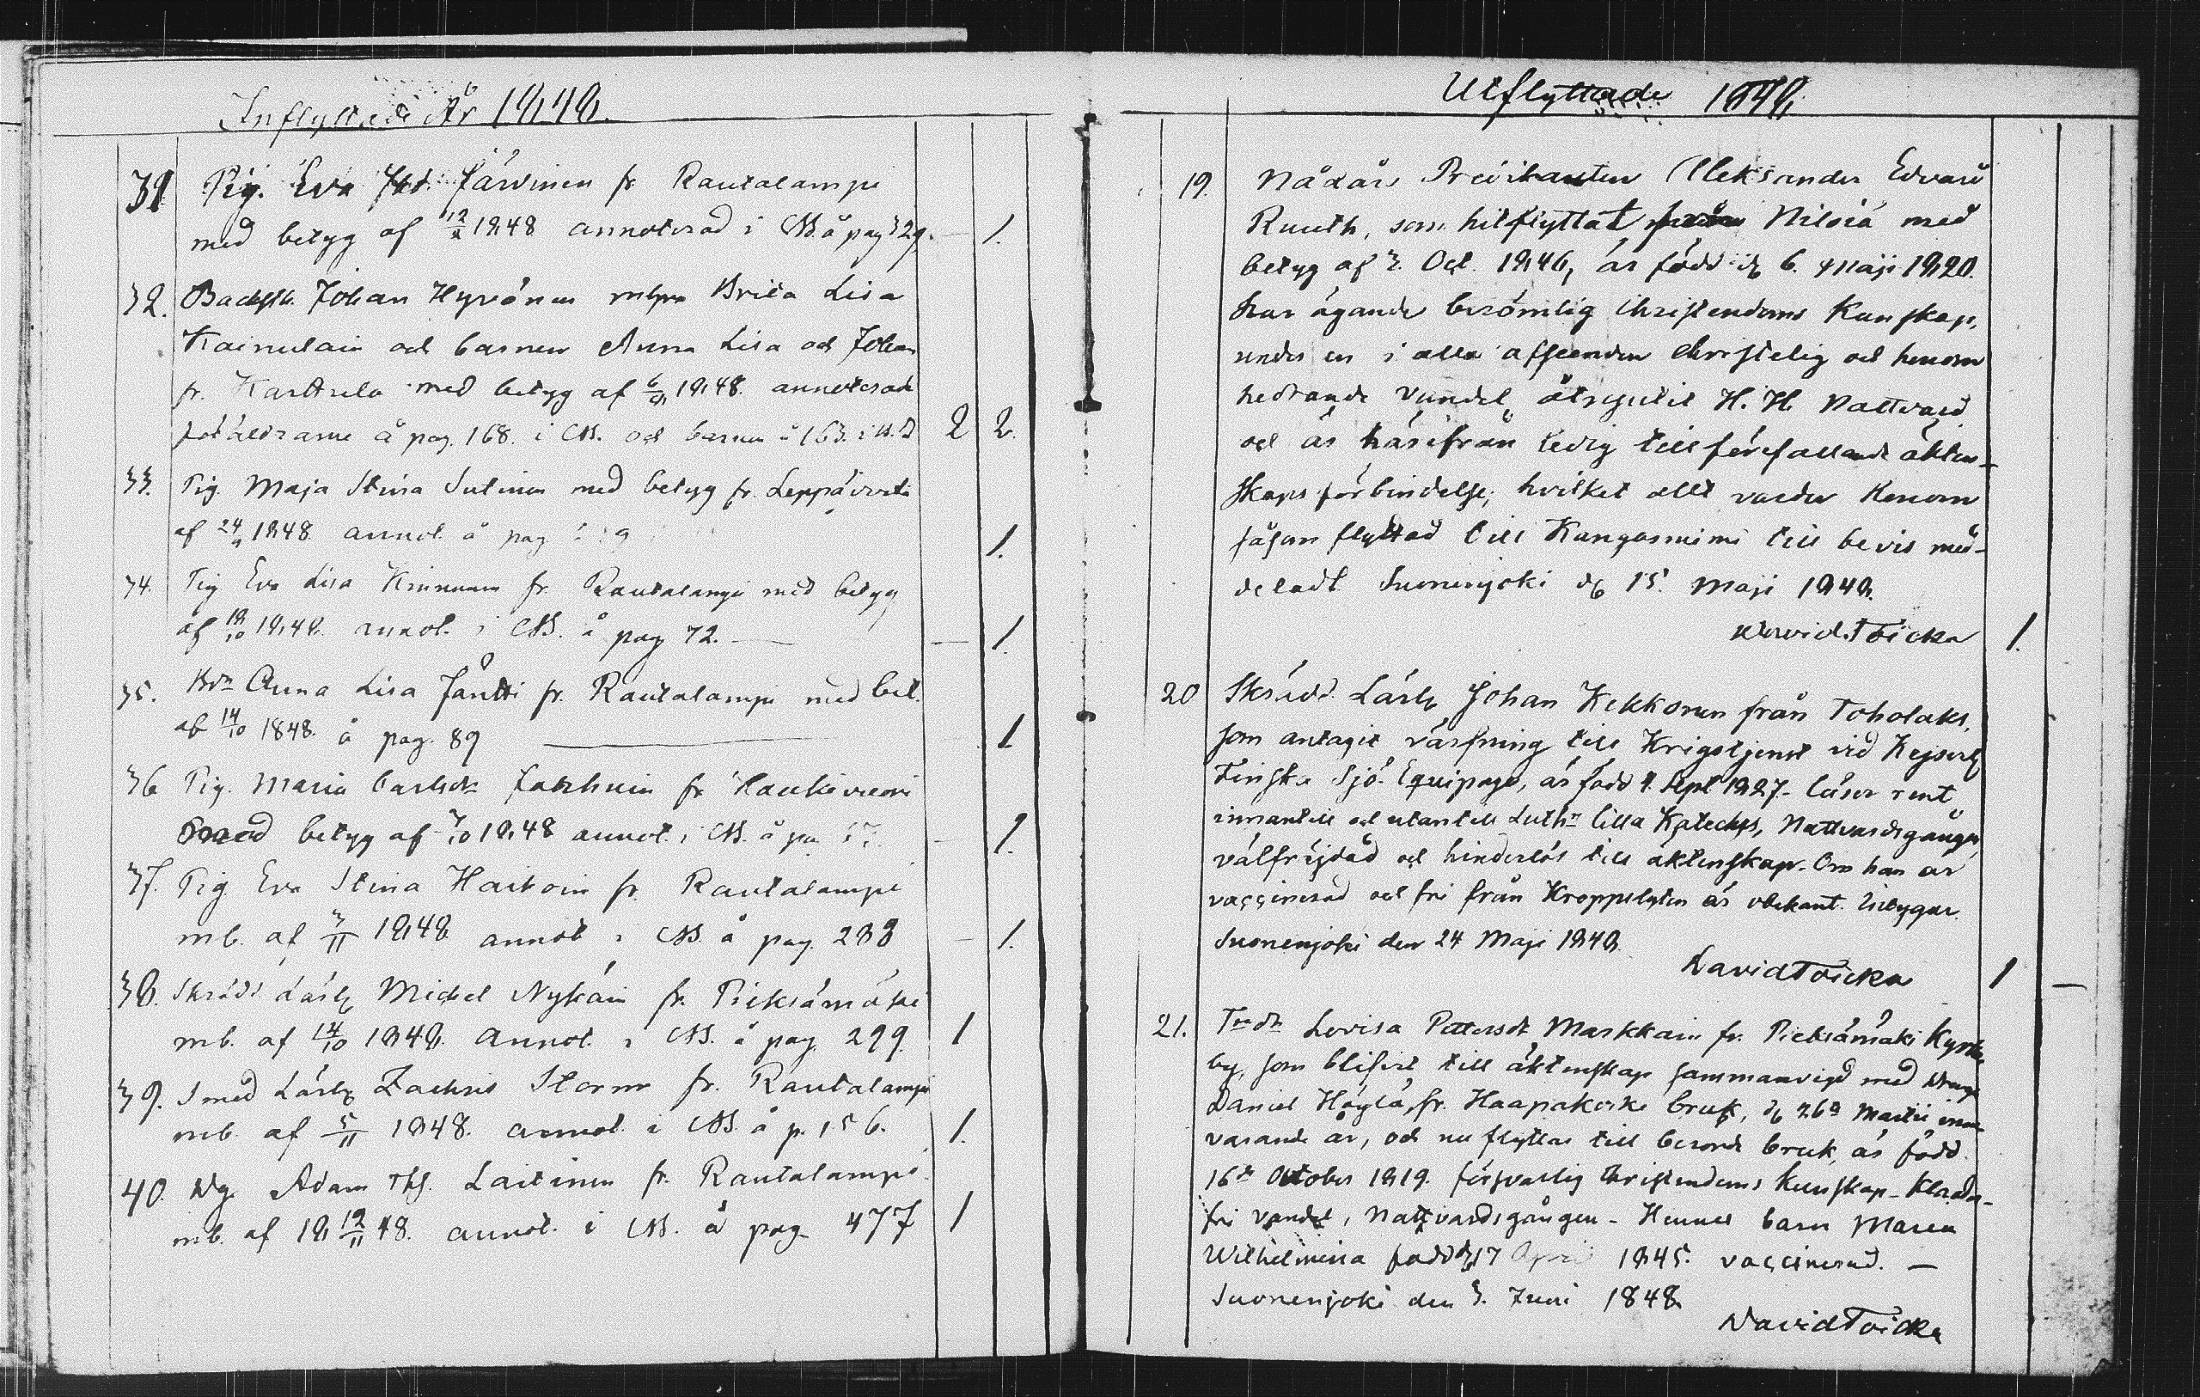 Inflyttade År 1848.
31 Pig. Eva Järvinen fr Rautalampi
med betyg af 12/8 1848 annoterad i CB. å pag 329. 1.
32. Backst. Johan Hyvönen m hru Brita Lisa
Kainulain och barnen Anna Lisa och Johan
fr. Karttula med betyg af 6/9 1848. annoterade
föräldrarne å pag. 168. i CB. och barnen å 163. i 2 2.
33. Pig. Maja Stina Sutinen med betyg fr. Leppävirta
af 24/9 1848. annot. å pag 1.
34. Pig Eva Lisa Kinnunen fr. Rautalampi med betyg
af 18/10 1848. annot. i CB. å pag 72. — — 1.
35. Anna Lisa Jäntti fr. Rautalampi med bet.
af 14/10 1848. å pag. 89 — 1
36 Pig. Maria Carlsdr fr Haukivuori
med betyg af 7/10 1848 annot. i CB. å pa — 1.
37. Pig. Eva Stina Hartoin fr. Rautalampi
mb. af 3/11 1848 annot i CB. å pag. 288 — 1.
38. Skrädd Lärl Michel Nykäin fr. Pieksämäki
mb. af 14/10 1848. annot. i CB. å pag. 299. 1
39. Smed Lärl Zachris Storm fr. Rautalampi
mb. af 5/11 1848. annot. i CB. å p. 156. 1.
40. Dg. Adam Ths. Laitinen fr. Rautalampi
mb. af 18 12/11 48. annot. i CB. å pag. 477 1
Utflyttade 1848.
19. Nådår Predikanten Aleksander Edvard
Ruuth, som hitflyttat från Nilsiä med
betyg af 3. Oct. 1846, är född d 6. Maji 1820.
har ägande berömlig Christendoms Kunskap,
under en i alla afseenden christelig och honom
hedrande vandel åtnjutit H. H. Nattvard
och är härifrån ledig till förefallande äkten-
skaps förbindelse; hvilket allt varder honom
såsom flyttad till Kangasniemi till bevis med-
deladt. Suonenjoki d 15. Maji 1848.
David Toicka 1.
20 Skrädd. Lärl Johan Kekkonen från Toholaks,
som antagit värfning till Krigstjenst vid Kejserl
Finska Sjö-Equipage, är född 4. Sept 1827. läser rent
innantill och utantill Luthr lilla Kateches, Nattvardsgången
välfrejdad och hinderlös till äktenskap. Om han är
vaccinerad och fri från Kroppslyten är obekant. intygar.
Suonenjoki den 24 Maji 1848.
David Toicka 1 —
21. Lovisa Pettersdr Markkain fr. Pieksämäki Kyrko
by, som blifvit till äktenskap sammanvigd med Dreng
Daniel Höylä, fr. Haapakoski bruk, d 26 Martii inne-
varande år, och nu flyttar till berörde bruk, är född
16de October 1819. försvarlig Christendoms Kunskap - Klander-
fri vandel, Nattvardsgången - Hennes barn Maria
Wilhelmina född d 17 April 1845. vaccinerad. —
Suonenjoki den 3. Juni 1848
David Toicka